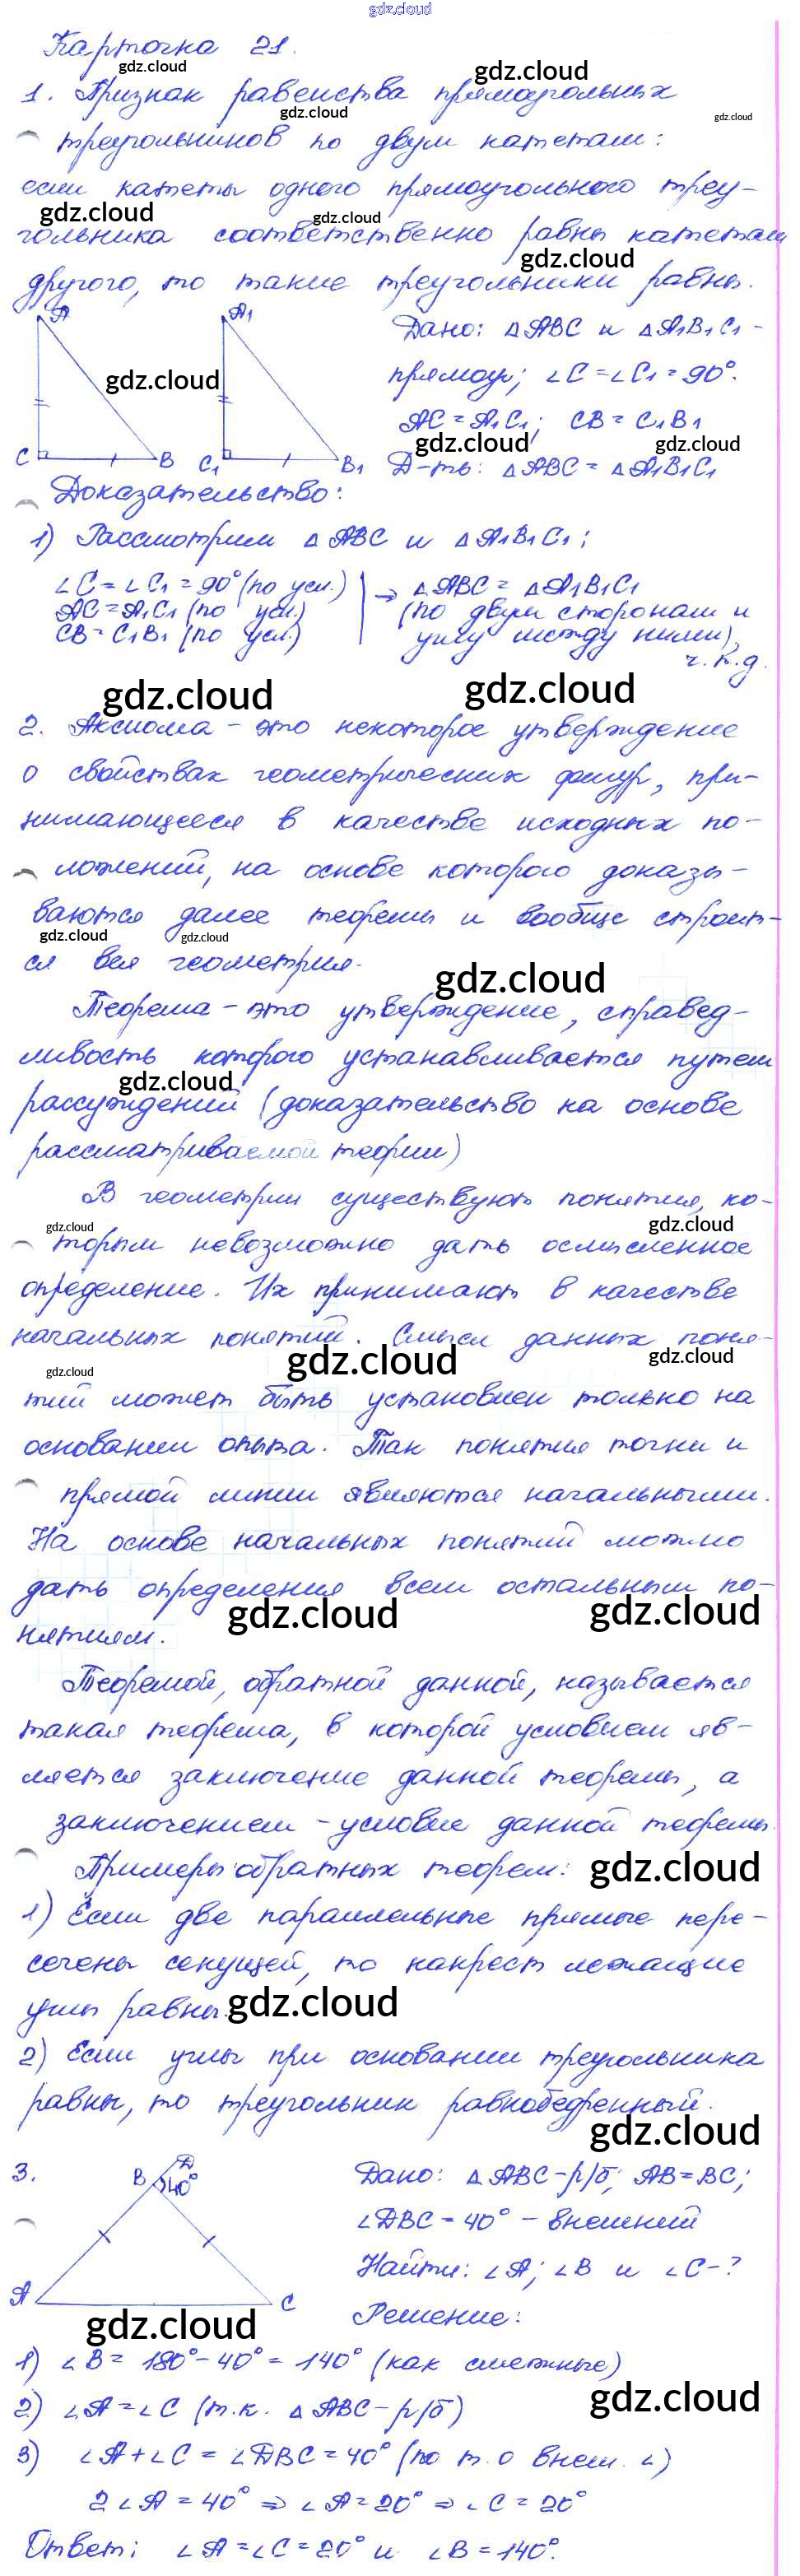 gdz.cloud
Карточка 21.
gdz.cloud gdz.cloud
1. Признак равенства прямоугольных
gdz.cloud gdz.cloud
треугольников по двум катетам:
если катеты одного прямоугольного треу-
gdz.cloud gdz.cloud
гольника соответственно равны катетам
gdz.cloud
другого, то такие треугольники равны.
A A₁ Дано: △ABC и △A₁B₁C₁ -
gdz.cloud прямоуг; ∠C = ∠C₁ = 90°.
AC = A₁C₁; CB = C₁B₁
gdz.cloud gdz.cloud
C B C₁ B₁ Д-ть: △ABC = △A₁B₁C₁
Доказательство:
1) Рассмотрим △ABC и △A₁B₁C₁;
∠C = ∠C₁ = 90° (по усл.) ⇒ △ABC = △A₁B₁C₁
AC = A₁C₁ (по усл.) (по двум сторонам и
CB = C₁B₁ (по усл.) углу между ними),
ч.т.д.
gdz.cloud gdz.cloud
2. Аксиома - это некоторое утверждение
о свойствах геометрических фигур, при-
нимающееся в качестве исходных по-
ложений, на основе которого доказы-
ваются далее теоремы и вообще строит-
gdz.cloud gdz.cloud
ся вся геометрия.
gdz.cloud
Теорема - это утверждение, справед-
ливость которого устанавливается путем
gdz.cloud
рассуждений (доказательство на основе
рассматриваемой теории)
В геометрии существуют понятия, ко-
gdz.cloud gdz.cloud
торым невозможно дать осмысленное
определение. Их принимают в качестве
начальных понятий. Смысл данных поня-
gdz.cloud gdz.cloud gdz.cloud
тий может быть установлен только на
основании опыта. Так понятия точки и
прямой линии являются начальными.
На основе начальных понятий можно
дать определения всем остальным по-
gdz.cloud gdz.cloud
нятиям.
Теоремой, обратной данной, называется
такая теорема, в которой условием яв-
ляется заключение данной теоремы, а
заключением - условие данной теоремы.
Примеры обратных теорем: gdz.cloud
1) Если две параллельные прямые пере-
сечены секущей, то накрест лежащие
углы равны. gdz.cloud
2) Если углы при основании треугольника
равны, то треугольник равнобедренный.
gdz.cloud
3. B D 40° Дано: △ABC - р/б; AB = BC;
∠DBC = 40° - внешний
Найти: ∠A; ∠B и ∠C - ?
A C Решение:
gdz.cloud
1) ∠B = 180° - 40° = 140° (как смежные)
gdz.cloud
2) ∠A = ∠C (т.к. △ABC - р/б)
3) ∠A + ∠C = ∠DBC = 40° (по т. о внеш. ∠)
2∠A = 40° ⇒ ∠A = 20° ⇒ ∠C = 20°
Ответ: ∠A = ∠C = 20° и ∠B = 140°.